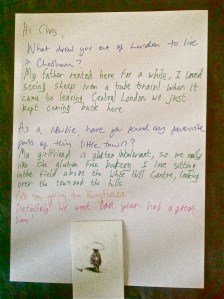 Hi Chris,
What drew you out of London to live
in Chesham?
My father rented here for a while, I loved
seeing sheep from a tube train! When it
came to leaving Central London we just
kept coming back here.
As a newbie have you found any favourite
parts of this little town?
My girlfriend is gluten intolerant, so we really
the gluten free bakery. I love sitting
in the field above the White Hill Centre, looking
over the town and the hills.
Are you going to
Definitely! We went last year had a great
time!